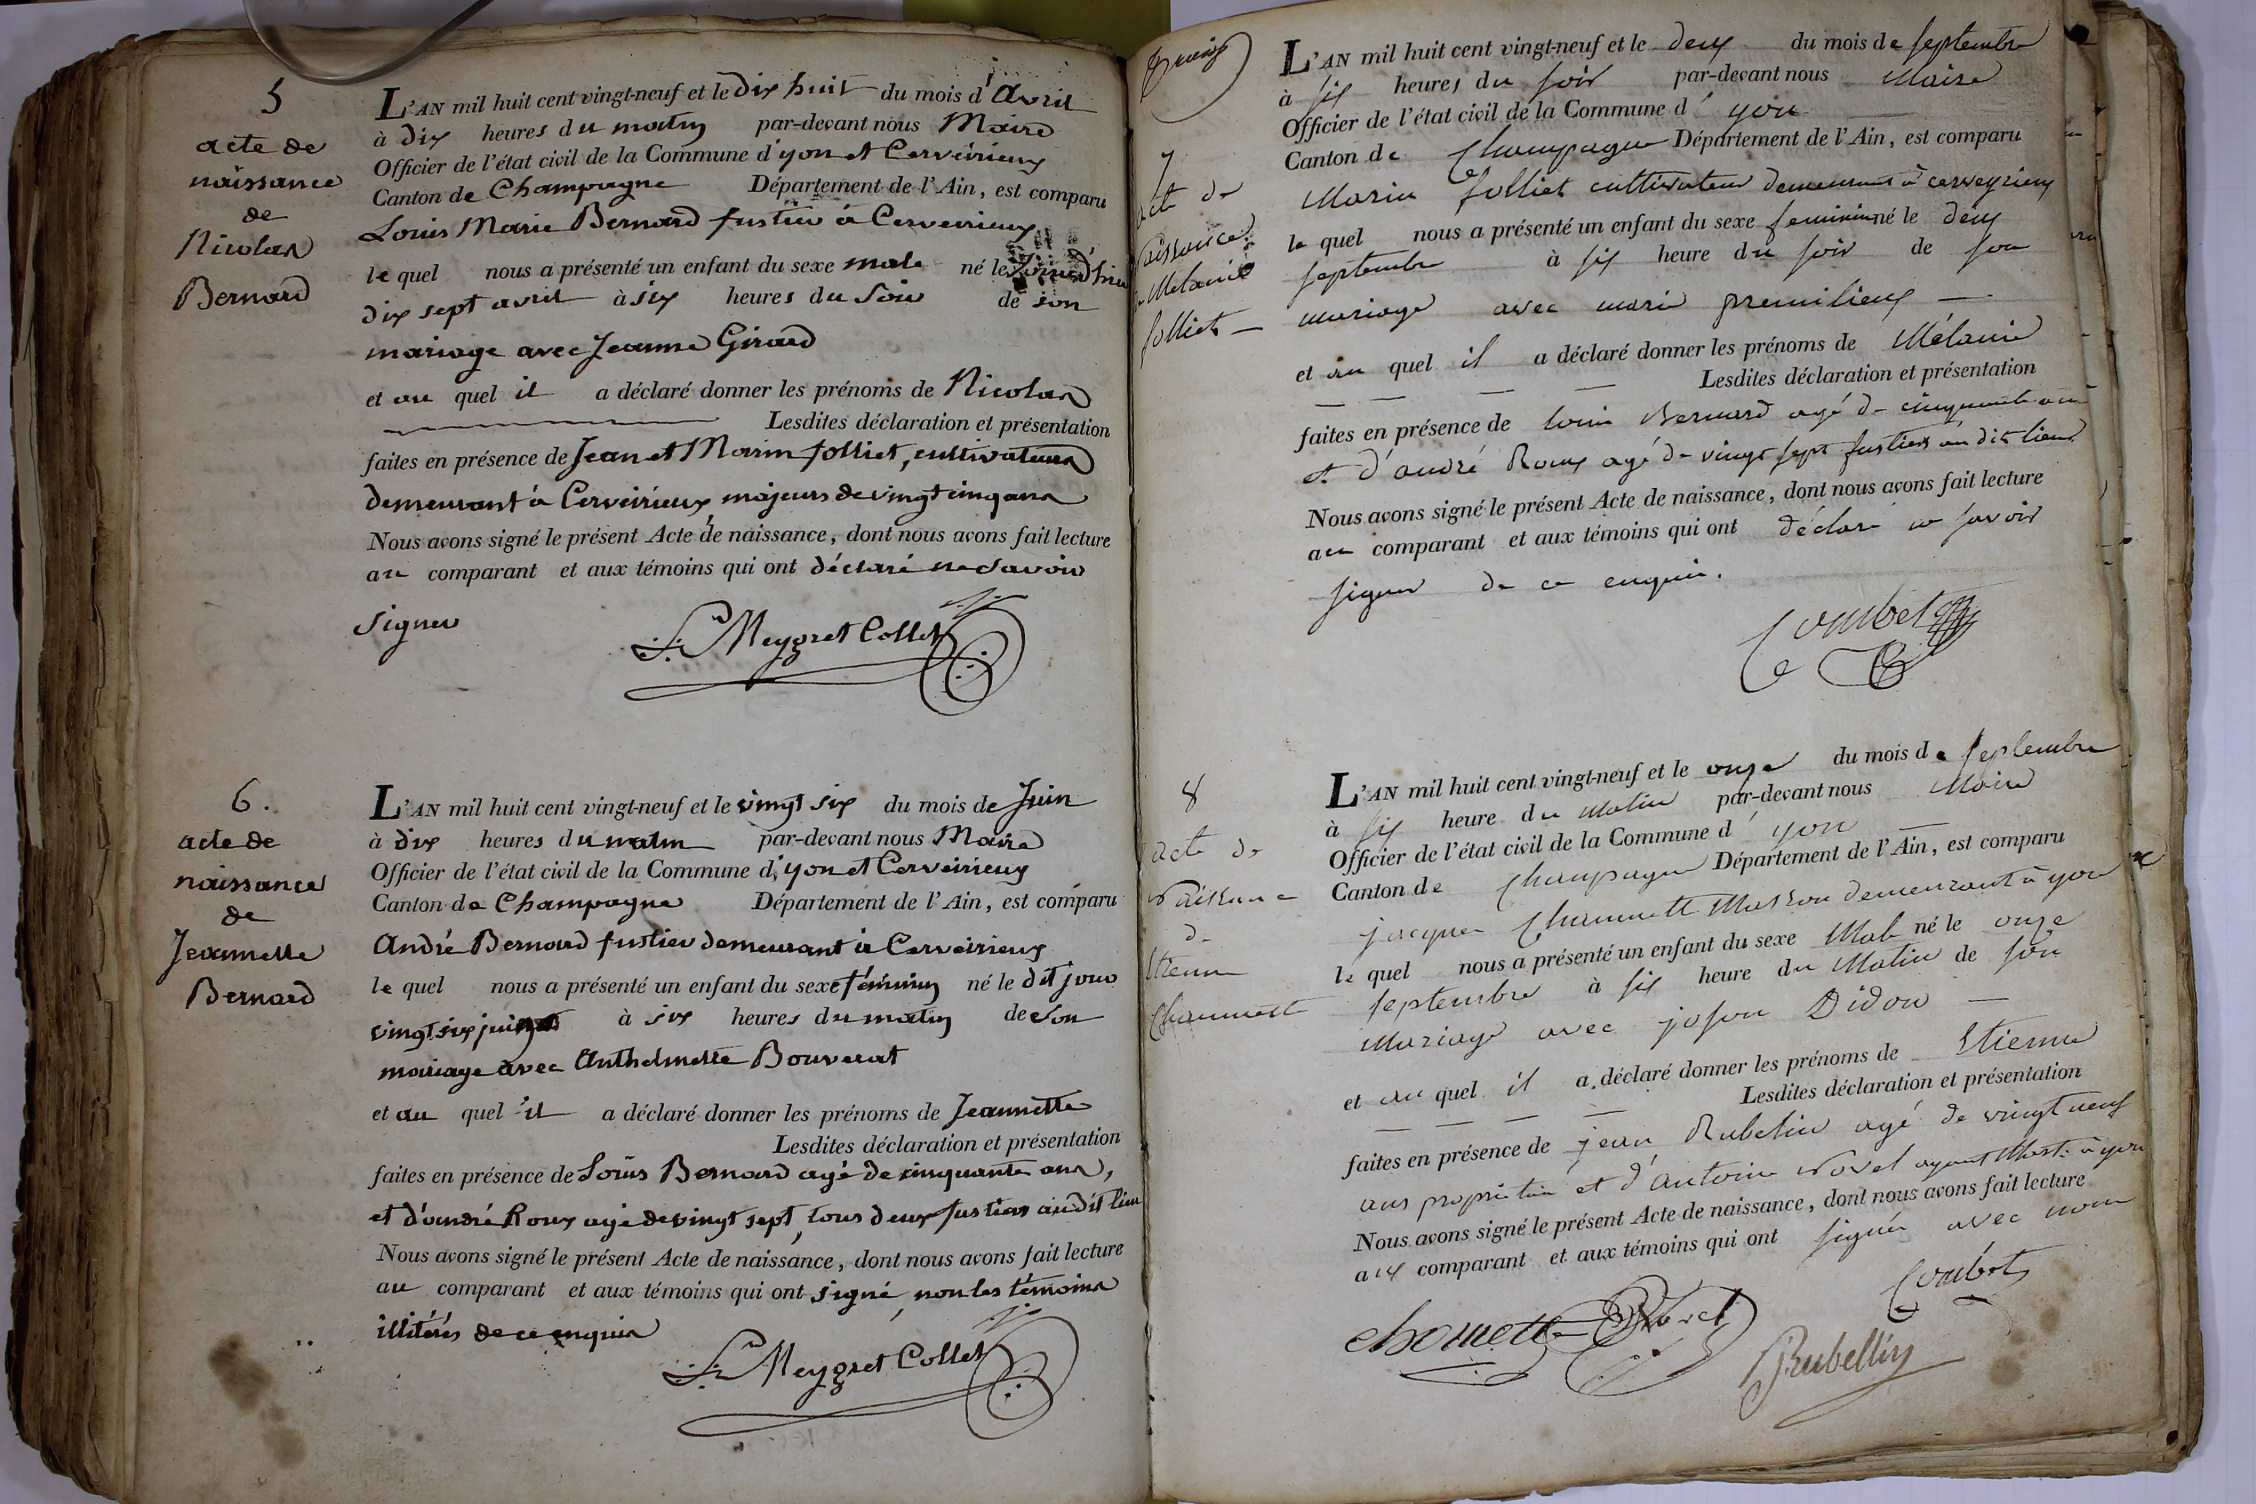 5
acte de
naissance
de
Nicolas
Bernard
L'AN mil huit cent vingt-neuf et le dix huit du mois d'avril
à dix heures du matin par-devant nous Maire
Officier de l'état civil de la Commune d'yon et Cerveirieux
Canton de Champagne Département de l'Ain, est comparu
Louis Marie Bernard fustier à Cerveirieux
le quel nous a présenté un enfant du sexe male né le jour d'hier
dix sept avril à six heures du soir de son
mariage avec Jeanne Girard
et au quel il a déclaré donner les prénoms de Nicolas
Lesdites déclaration et présentation
faites en présence de Jean et Marin folliet, cultivateurs
demeurant à Cerveirieux majeurs de vingt cinq ans
Nous avons signé le présent Acte de naissance, dont nous avons fait lecture
au comparant et aux témoins qui ont déclaré ne savoir
signer
Meygret Collet
6.
acte de
naissance
de
Jeannette
Bernard
L'AN mil huit cent vingt-neuf et le vingt six du mois de Juin
à dix heures du matin par-devant nous Maire
Officier de l'état civil de la Commune d'yon et Cerveirieux
Canton de Champagne Département de l'Ain, est comparu
André Bernard fustier demeurant à Cerveirieux
le quel nous a présenté un enfant du sexe féminin né le dit jour
vingt six juin à six heures du matin de son
mariage avec Anthelmette Bouverat
et au quel il a déclaré donner les prénoms de Jeannette
Lesdites déclaration et présentation
faites en présence de Louis Bernard agé de cinquante ans,
et d'andré Roux agé de vingt sept, tous deux fustiers au dit lieu
Nous avons signé le présent Acte de naissance, dont nous avons fait lecture
au comparant et aux témoins qui ont signé, non les témoins
illitérés de ce enquis
Meygret Collet
7
acte de
naissance
de Melanie
folliet
L'AN mil huit cent vingt-neuf et le deux du mois de septembre
à six heures du soir par-devant nous Maire
Officier de l'état civil de la Commune d'yon
Canton de Champagne Département de l'Ain, est comparu
Marin folliet cultivateur demeurant à cerveyrieux
le quel nous a présenté un enfant du sexe feminin né le deux
septembre à six heure du soir de son
mariage avec marie premilieux
et au quel il a déclaré donner les prénoms de Mélanie
Lesdites déclaration et présentation
faites en présence de louis Bernard agé de cinquante ans
et d'andré Roux agé de vingt sept fustiers au dit lieux
Nous avons signé le présent Acte de naissance, dont nous avons fait lecture
au comparant et aux témoins qui ont déclaré ne savoir
signer de ce enquis.
Combet
8
acte de
Naissance
de
Etienne
Chaumette
L'AN mil huit cent vingt-neuf et le onze du mois de septembre
à six heure du matin par-devant nous Maire
Officier de l'état civil de la Commune d'yon
Canton de Champagne Département de l'Ain, est comparu
jacques Chaumette Masson demeurant à yon
le quel nous a présenté un enfant du sexe Male né le onze
septembre à six heure du Matin de son
Mariage avec Didon
et au quel il a déclaré donner les prénoms de Etienne
Lesdites déclaration et présentation
faites en présence de jean Rubelin agé de vingt neuf
ans propriétaire et d'Antoine Novel à yon
Nous avons signé le présent Acte de naissance, dont nous avons fait lecture
aux comparant et aux témoins qui ont signés avec nous
chomette Novel Combet
Rubellin